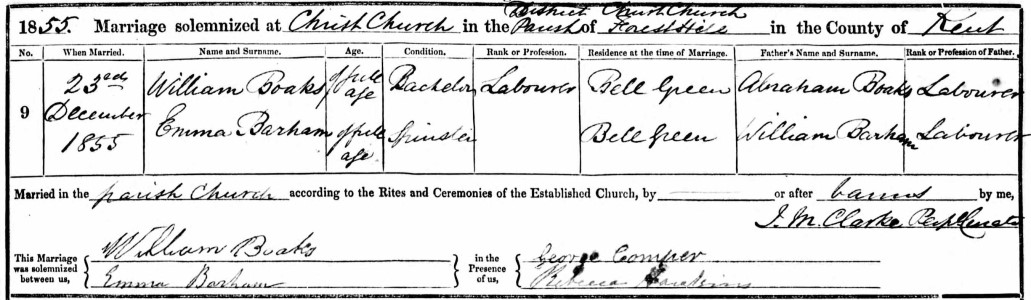 District Christ Church
1855. Marriage solemnized at Christ Church in the Parish of Forest Hill in the County of Kent
No. When Married. Name and Surname. Age. Condition. Rank or Profession. Residence at the time of Marriage. Father's Name and Surname. Rank or Profession of Father.
9 23rd December 1855 William Boaks of full age Bachelor Labourer Bell Green Abraham Boaks Labourer
Emma Barham of full age Spinster Bell Green William Barham Labourer
Married in the parish Church according to the Rites and Ceremonies of the Established Church, by or after banns by me,
J. M. Clarke Perp Curate
This Marriage was solemnized between us, William Boaks in the Presence of us, George Comper
Emma Barham Rebecca